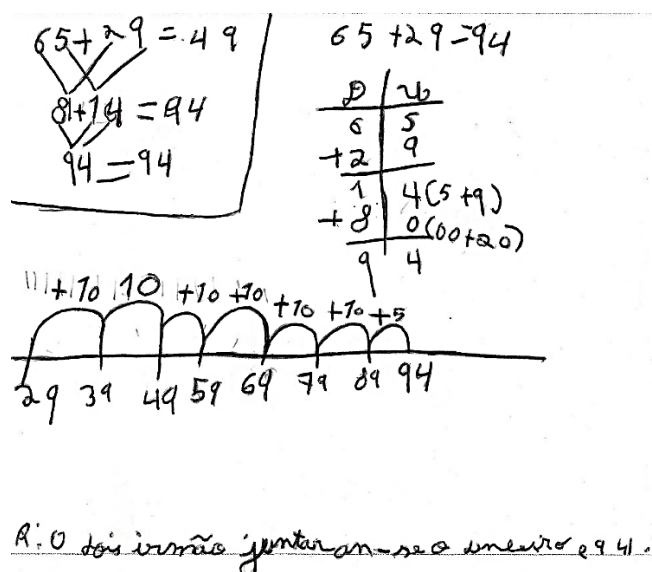 65+29=49
81+14=94
94=94
65+29=94
D U
6 5
+2 9
1 4(5+9)
+8 0(60+20)
9 4
+10 10 +10 +10 +10 +10 +5
29 39 49 59 69 79 89 94
R: O dois irmão juntaran-se o